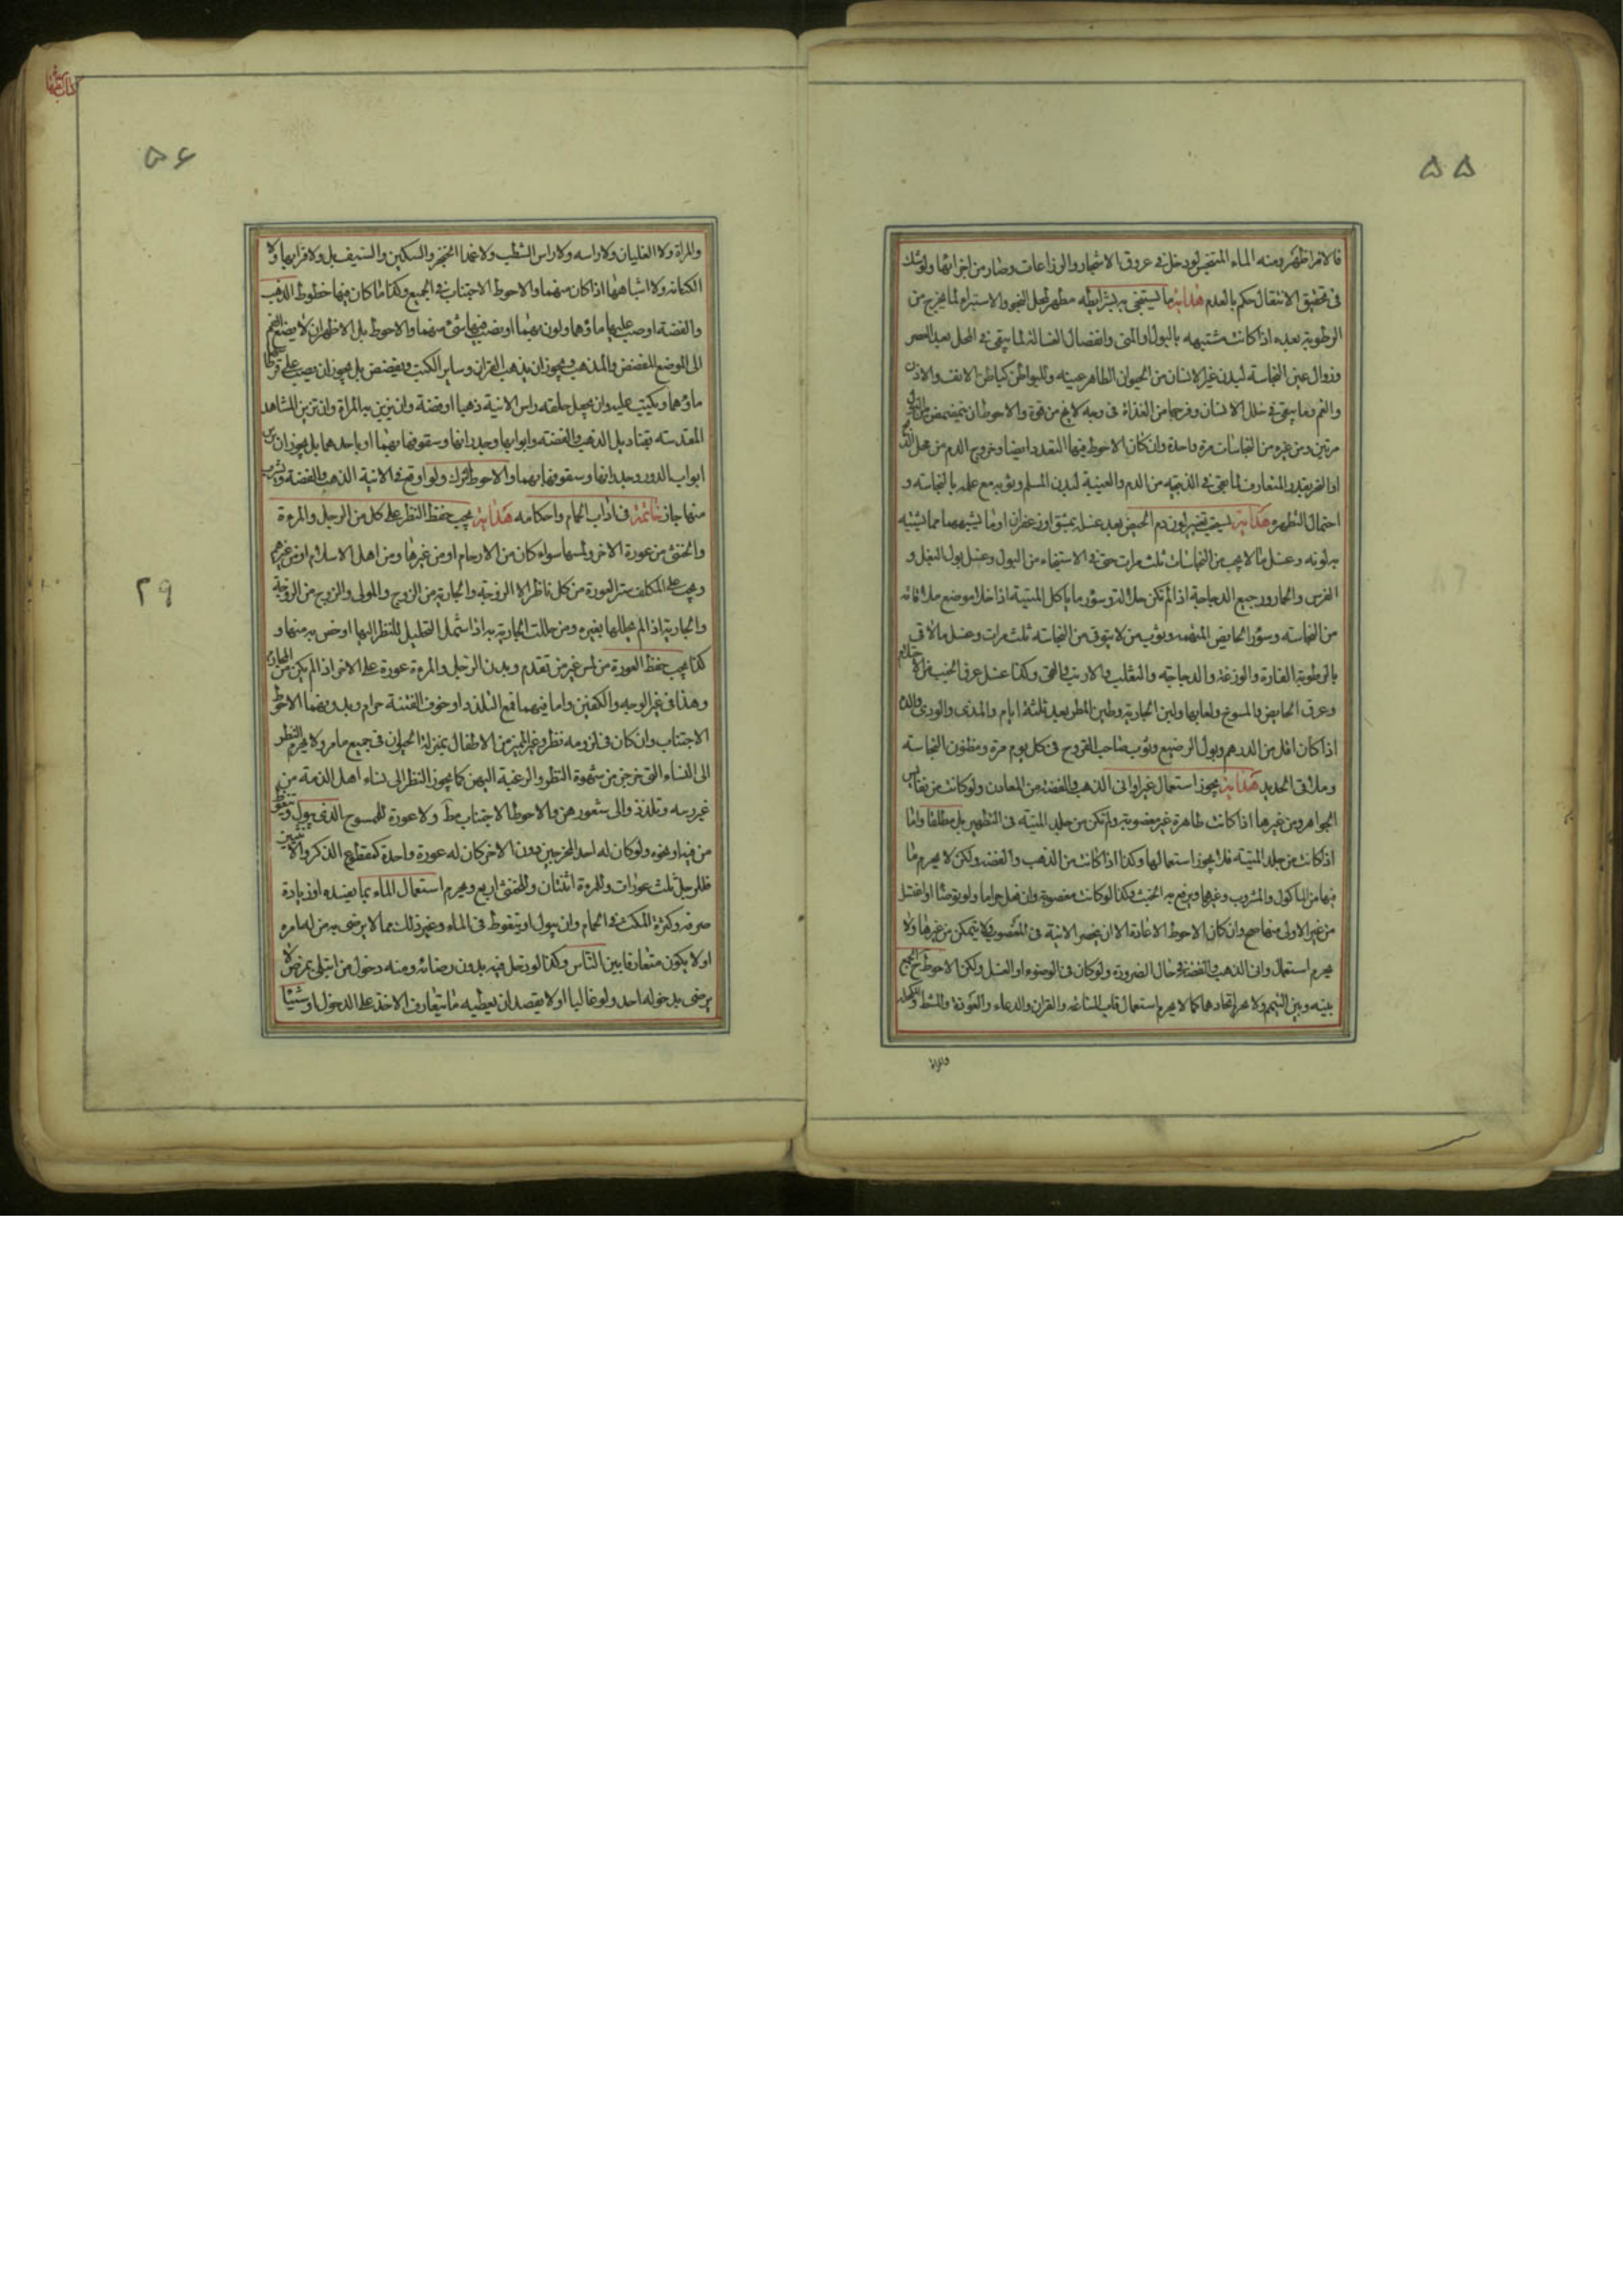 ۵۵
فالاقرا ظهر ومنه الماء المتنجس لو دخل فى عروق الاشجار والزراعات وصار من اجزائها ولو شك
فى تحقيق الانتقال حكم بالعدم هداية ما يستنجى به بشرايطه مطهر لمحل النجو والاستبراء لما يخرج من
الرطوبة بعده اذا كانت مشتبهه بالبول او المنى وانفصال الغسالة لما يبقى فى المحل بعد العصر
وزوال عين النجاسة لبدن غير الانسان من الحيوان الطاهر عينه وللبواطن كباطن الانف والاذن
والفم وما يبقى فى خلل الاسنان وفرجها من الغذاة فى وجه لا يخ من قوة والاحوط ان يتمضمض
مرتين ومن غيره من النجاسات مرة واحدة وان كان الاحوط فيها التعدد ايضا وخروج الدم من محل
او النحر بقدر المتعارف لما بقى فى الذبيحه من الدم والغيبة لبدن المسلم وثوبه مع علمه بالنجاسه و
احتمال التطهر هداية يستحب تغيير لون دم الحيض بعد غسله بمشق او زعفران او ما يشبههما مما يشبه
به لونه وغسل ما لا يجب من النجاسات ثلث مرات حتى فى الاستنجاء من البول وغسل بول البغل و
الفرس والحمار ورجيع الدجاجة اذا لم تكن جلالة وسؤر ما ياكل الميتة اذا خلا موضع ملاقاته
من النجاسه وسؤر الحايض المتهمه وثوب من لا يتوقى من النجاسه ثلث مرات وغسل ما لاقى
بالرطوبة الفارة والوزغة والدجاجة والثعلب والارنب والحى وكذا غسل عرق الجنب من الاحتلام
وعرق الحايض والمسوخ ولعابها ولبن الجارية وطين المطر بعد ثلثة ايام والمذى والودى والدم
اذا كان اقل من الدرهم وبول الرضيع وثوب صاحب القروح فى كل يوم مرة ومظنون النجاسة
وملاقى الحديد هداية يجوز استعمال غير اوانى الذهب والفضة من المعادن ولو كانت من نفايس
الجواهر ومن غيرها اذا كانت طاهرة غير مغصوبة ولم تكن من جلد الميتة فى التطهير بل مطلقا واما
اذا كانت من جلد الميتة فلا يجوز استعمالها وكذا اذا كانت من الذهب والفضة ولكن لا يحرم ما
فيها من الماكول والمشروب وغيرهما ويرفع به الخبث وكذا لو كانت مغصوبة وان فعل حراما ولو توضأ او اغتسل
من غير الاولى منها صح وان كان الاحوط الاعادة الا ان ينحصر الانية فى المغصوب ولا يتمكن من غيرها ولا
يحرم استعمال وانى الذهب والفضة فى حال الضرورة ولو كان فى الوضوء او الغسل ولكن الاحوط ح الجمع
بينه وبين التيمم ولا يحرم اتخادهما كما لا يحرم استعمال قاب الساعة والقران والدعاء والعوذة والمشط والمكحلة
والمراة
۵۶
والمراة ولا الغليان ولا راسه ولا راس الشطب ولا غمد الخنجر والسكين والسيف بل ولا قرابها ولا
الكتابه ولا اشباهها اذا كان منهما والاحوط الاجتناب فى الجميع وكذا ما كان فيها خطوط الذهب
والفضة او صب عليها ماؤهما ولون بهما او نصب فيها شىء منهما والاحوط بل الاظهر ان لا يضع الفم
الى الموضع المفضض والمذهب ويجوز ان يذهب القران وساير الكتب ويفضض بل يجوز ان يصب على قرطاسها
ماؤهما ويكتب عليه وان يجعل حلقته راس الانية ذهبا او فضة وان يزين به المراة وان تزين المشاهد
المقدسه بقناديل الذهب والفضة وابوابها وجدرانها وسقوفها بهما او باحدهما بل يجوز ان يزين
ابواب الدور وجدرانها وسقوفها بهما والاحوط الترك ولو اوقع فى الانية الذهب والفضة وشرب
منها جاز خاتمة فى اداب الحمام واحكامه هداية يجب حفظ النظر على كل من الرجل والمرءة
والخنثى من عورة الاخر ولمسها سواء كان من الارحام او من غيرها ومن اهل الاسلام او من غيرهم
ويجب على المكلف ستر العورة من كل ناظر الا الزوجة والجارية من الزوج والمولى والزوج من الزوجة
والجارية اذا لم يحللها بغيره ومن حللت الجارية به اذا شمل التحليل للنظر اليها او خص به منها و
كذا يجب حفظ العورة من لمس غير من تقدم وبدن الرجل والمرءة عورة على الاخر اذا لم يكن من المحارم
وهذا فى غير الوجه والكفين واما فيهما فمع التلذذ او خوف الفتنة حرام وبدونهما الاحوط
الاجتناب وان كان فى لزومه نظر وغير المميز من الاطفال بمنزلة الحيوان فى جميع ما مر ولا يحرم النظر
الى النساء التى خرجن من شهوة النظر والرغبة اليهن كما يجوز النظر الى نساء اهل الذمة من
غير ريبه وتلذذ والى شعورهن والاحوط الاجتناب مط ولا عورة للممسوح الذى يبول ويتغوط
من فيه او نحوه ولو كان له احد المخرجين دون الاخر كان له عورة واحدة كمقطوع الذكر والانثيين
فللرجل ثلث عورات وللمرءة اثنتان وللخنثى اربع ويحرم استعمال الماء بما يفسده او زيادة
صرفه وكثرة المكث فى الحمام وان يبول او يتغوط فى الماء وغير ذلك مما لا يرضى به من له امره
او لا يكون متعارفا بين الناس وكذا لو دخل فيه بدون رضائه ومنه دخول من ابتلى بمرض لا
يرضى بدخوله احد ولو غالبا او لا يقصد ان يعطيه ما يتعارف الاخذ على الدخول او شيئا
۲۹